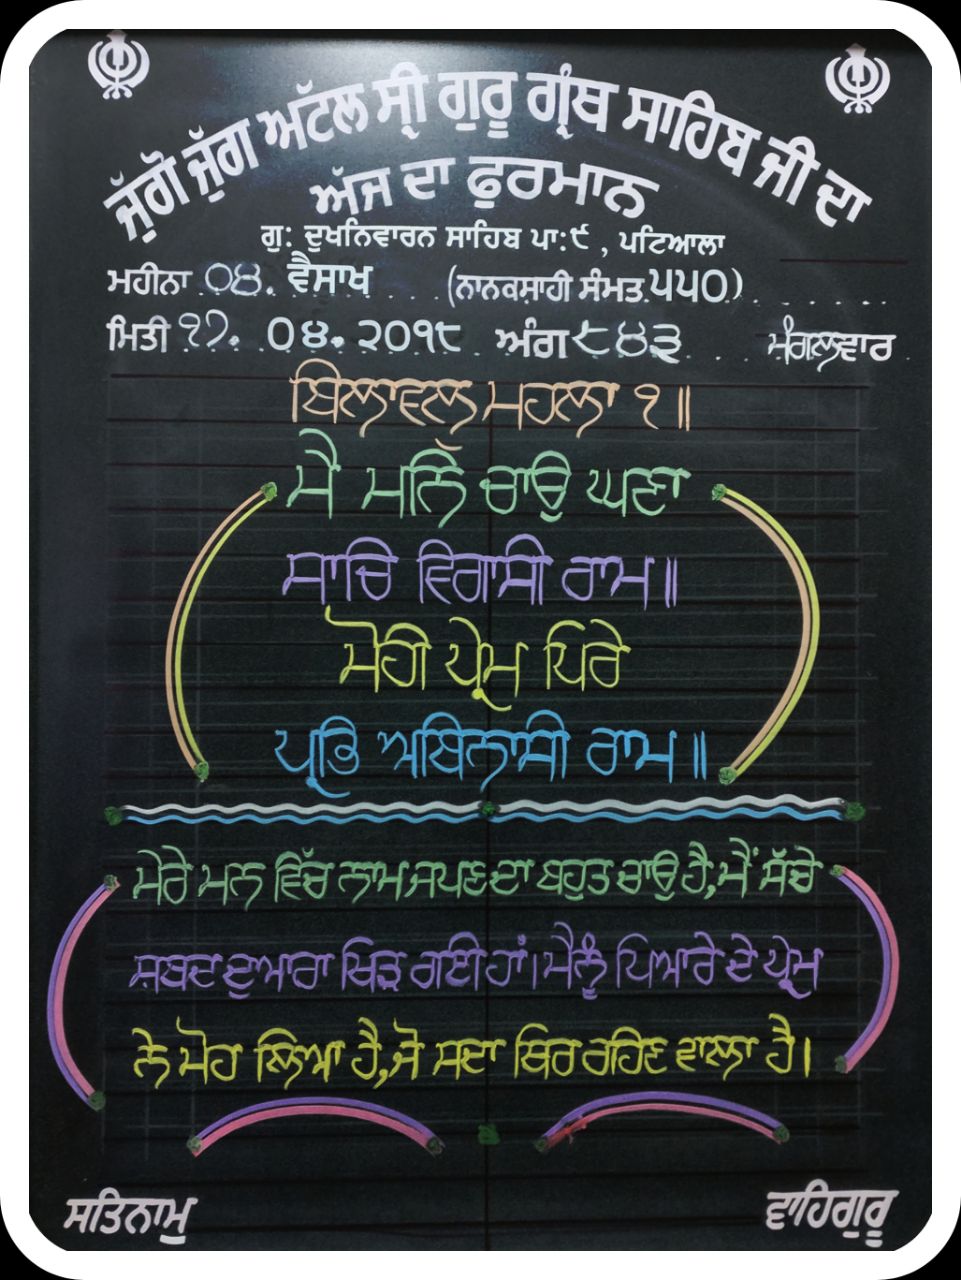 ਜੁੱਗੋ ਜੁੱਗ ਅਟੱਲ ਸ੍ਰੀ ਗੁਰੂ ਗ੍ਰੰਥ ਸਾਹਿਬ ਜੀ ਦਾ
ਅੱਜ ਦਾ ਫੁਰਮਾਨ
ਗੁ: ਦੁਖਨਿਵਾਰਨ ਸਾਹਿਬ ਪਾ:੯ , ਪਟਿਆਲਾ
ਮਹੀਨਾ 04. ਵੈਸਾਖ (ਨਾਨਕਸ਼ਾਹੀ ਸੰਮਤ ੫੫੦)
ਮਿਤੀ ੧੭. ੦੪. ੨੦੧੮ ਅੰਗ ੮੪੩ ਮੰਗਲਵਾਰ
ਬਿਲਾਵਲੁ ਮਹਲਾ ੧ ॥
ਮੈ ਮਨਿ ਚਾਉ ਘਣਾ
ਸਾਚਿ ਵਿਗਾਸੀ ਰਾਮ ॥
ਮੋਹੀ ਪ੍ਰੇਮ ਪਿਰੇ
ਪ੍ਰਭਿ ਅਬਿਨਾਸੀ ਰਾਮ ॥
ਮੇਰੇ ਮਨ ਵਿੱਚ ਨਾਮ ਜਪਣ ਦਾ ਬਹੁਤ ਚਾਉ ਹੈ, ਮੈਂ ਸੱਚੇ
ਸ਼ਬਦ ਦੁਆਰਾ ਖਿੜ ਗਈ ਹਾਂ। ਮੈਨੂੰ ਪਿਆਰੇ ਦੇ ਪ੍ਰੇਮ
ਨੇ ਮੋਹ ਲਿਆ ਹੈ, ਜੋ ਸਦਾ ਥਿਰ ਰਹਿਣ ਵਾਲਾ ਹੈ।
ਸਤਿਨਾਮੁ ਵਾਹਿਗੁਰੂ